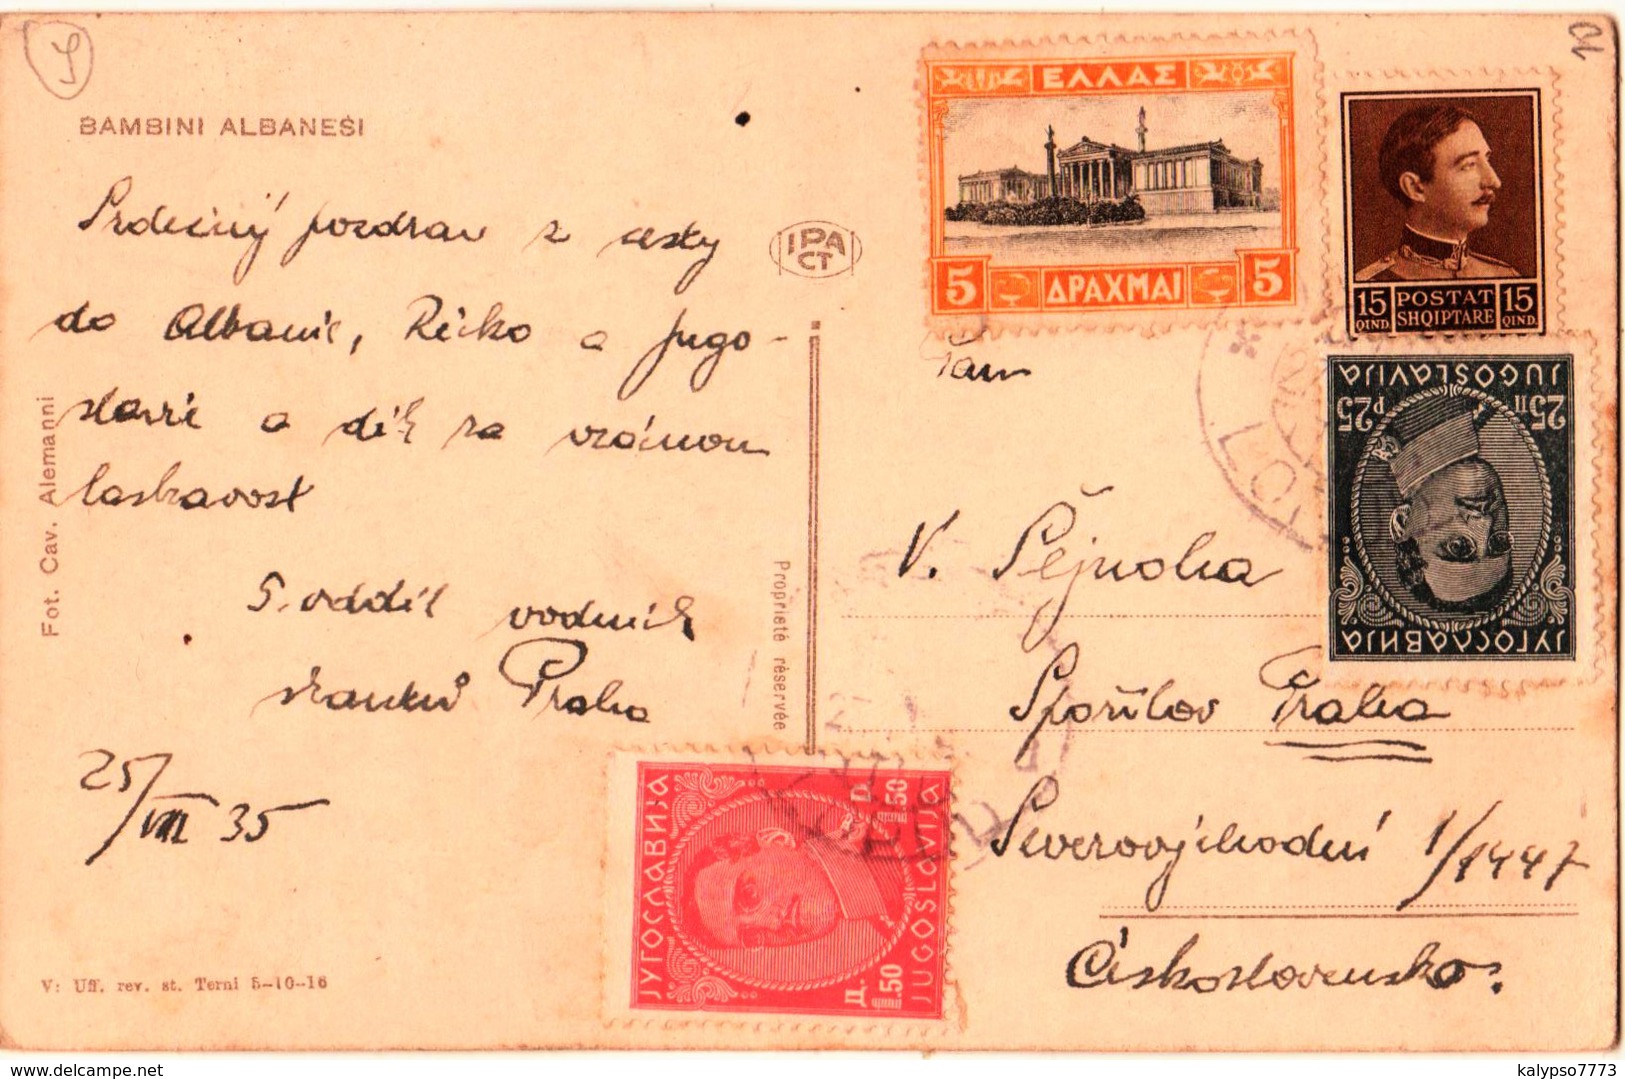 BAMBINI ALBANESI
Srdečný pozdrav z cesty
do Albanie, Řecko a Jugo-
slavie a dík za vzácnou
laskavost
5. oddíl vodních
skautů Praha
25/VIII 35
Fot. Cav. Alemanni
V: Uff. rev. st. Terni 5-10-16
IPA
CT
Proprieté réservée
ΕΛΛΑΣ
5 ΔΡΑΧΜΑΙ 5
15 QIND. POSTAT SHQIPTARE 15 QIND.
JUGOSLAVIJA
P25 25П
ЈУГОСЛАВИЈА
Pan
V. Šejnoha
Spořilov Praha
Severovýchodní 1/1447
Československo.
ЈУГОСЛАВИЈА
JUGOSLAVIJA
D. 1.50
Д. 1.50
delcampe.net
kalypso7773